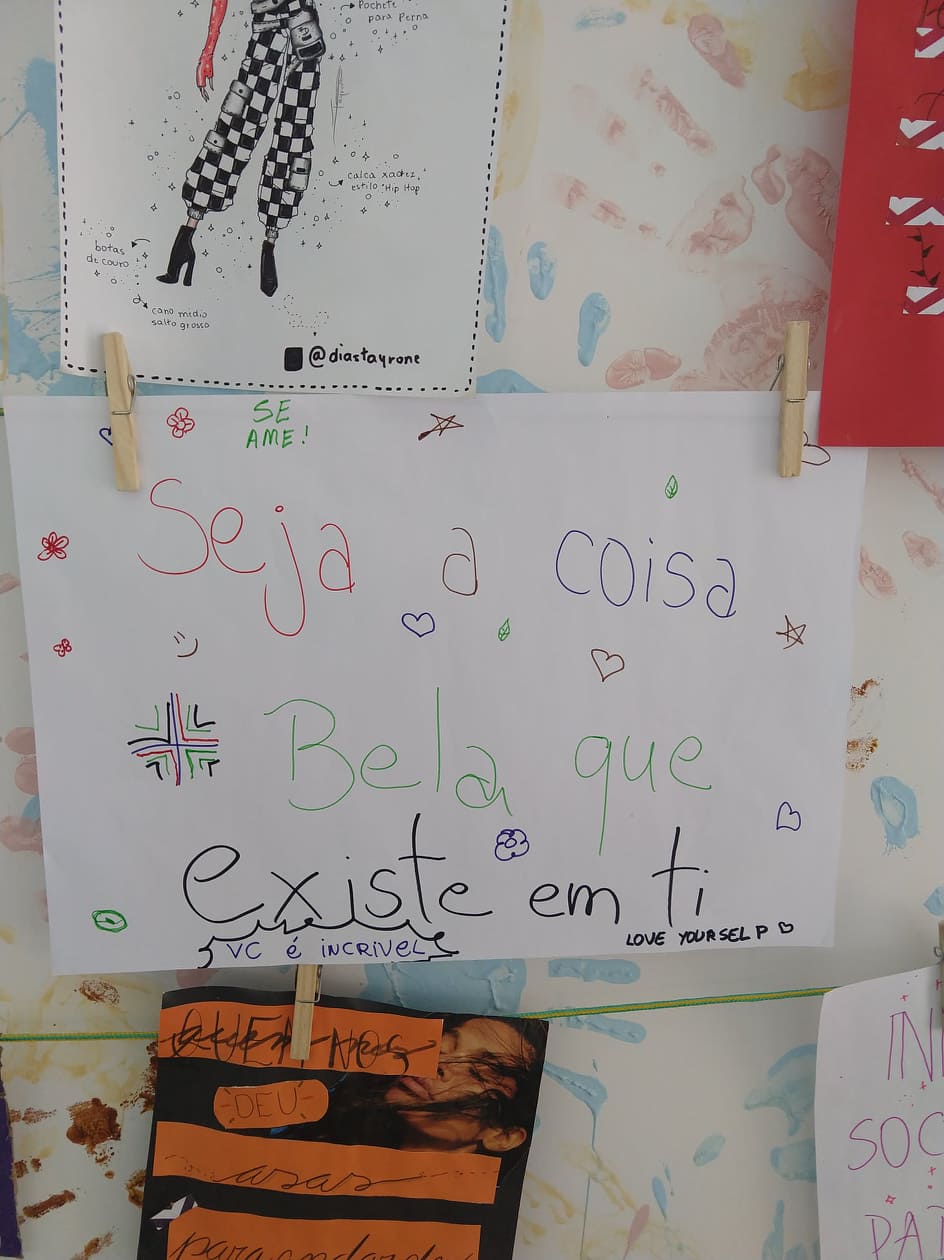 Pochete
para Perna
calca xadrez,
estilo Hip Hop
botas
de couro
cano médio
salto grosso
@diastayrone
SE
AME!
Seja a coisa
Bela que
existe em ti
VC é INCRIVEL
LOVE YOURSELF
QUEM NOS
DEU
asas
para andar de
IN
SOC
PA